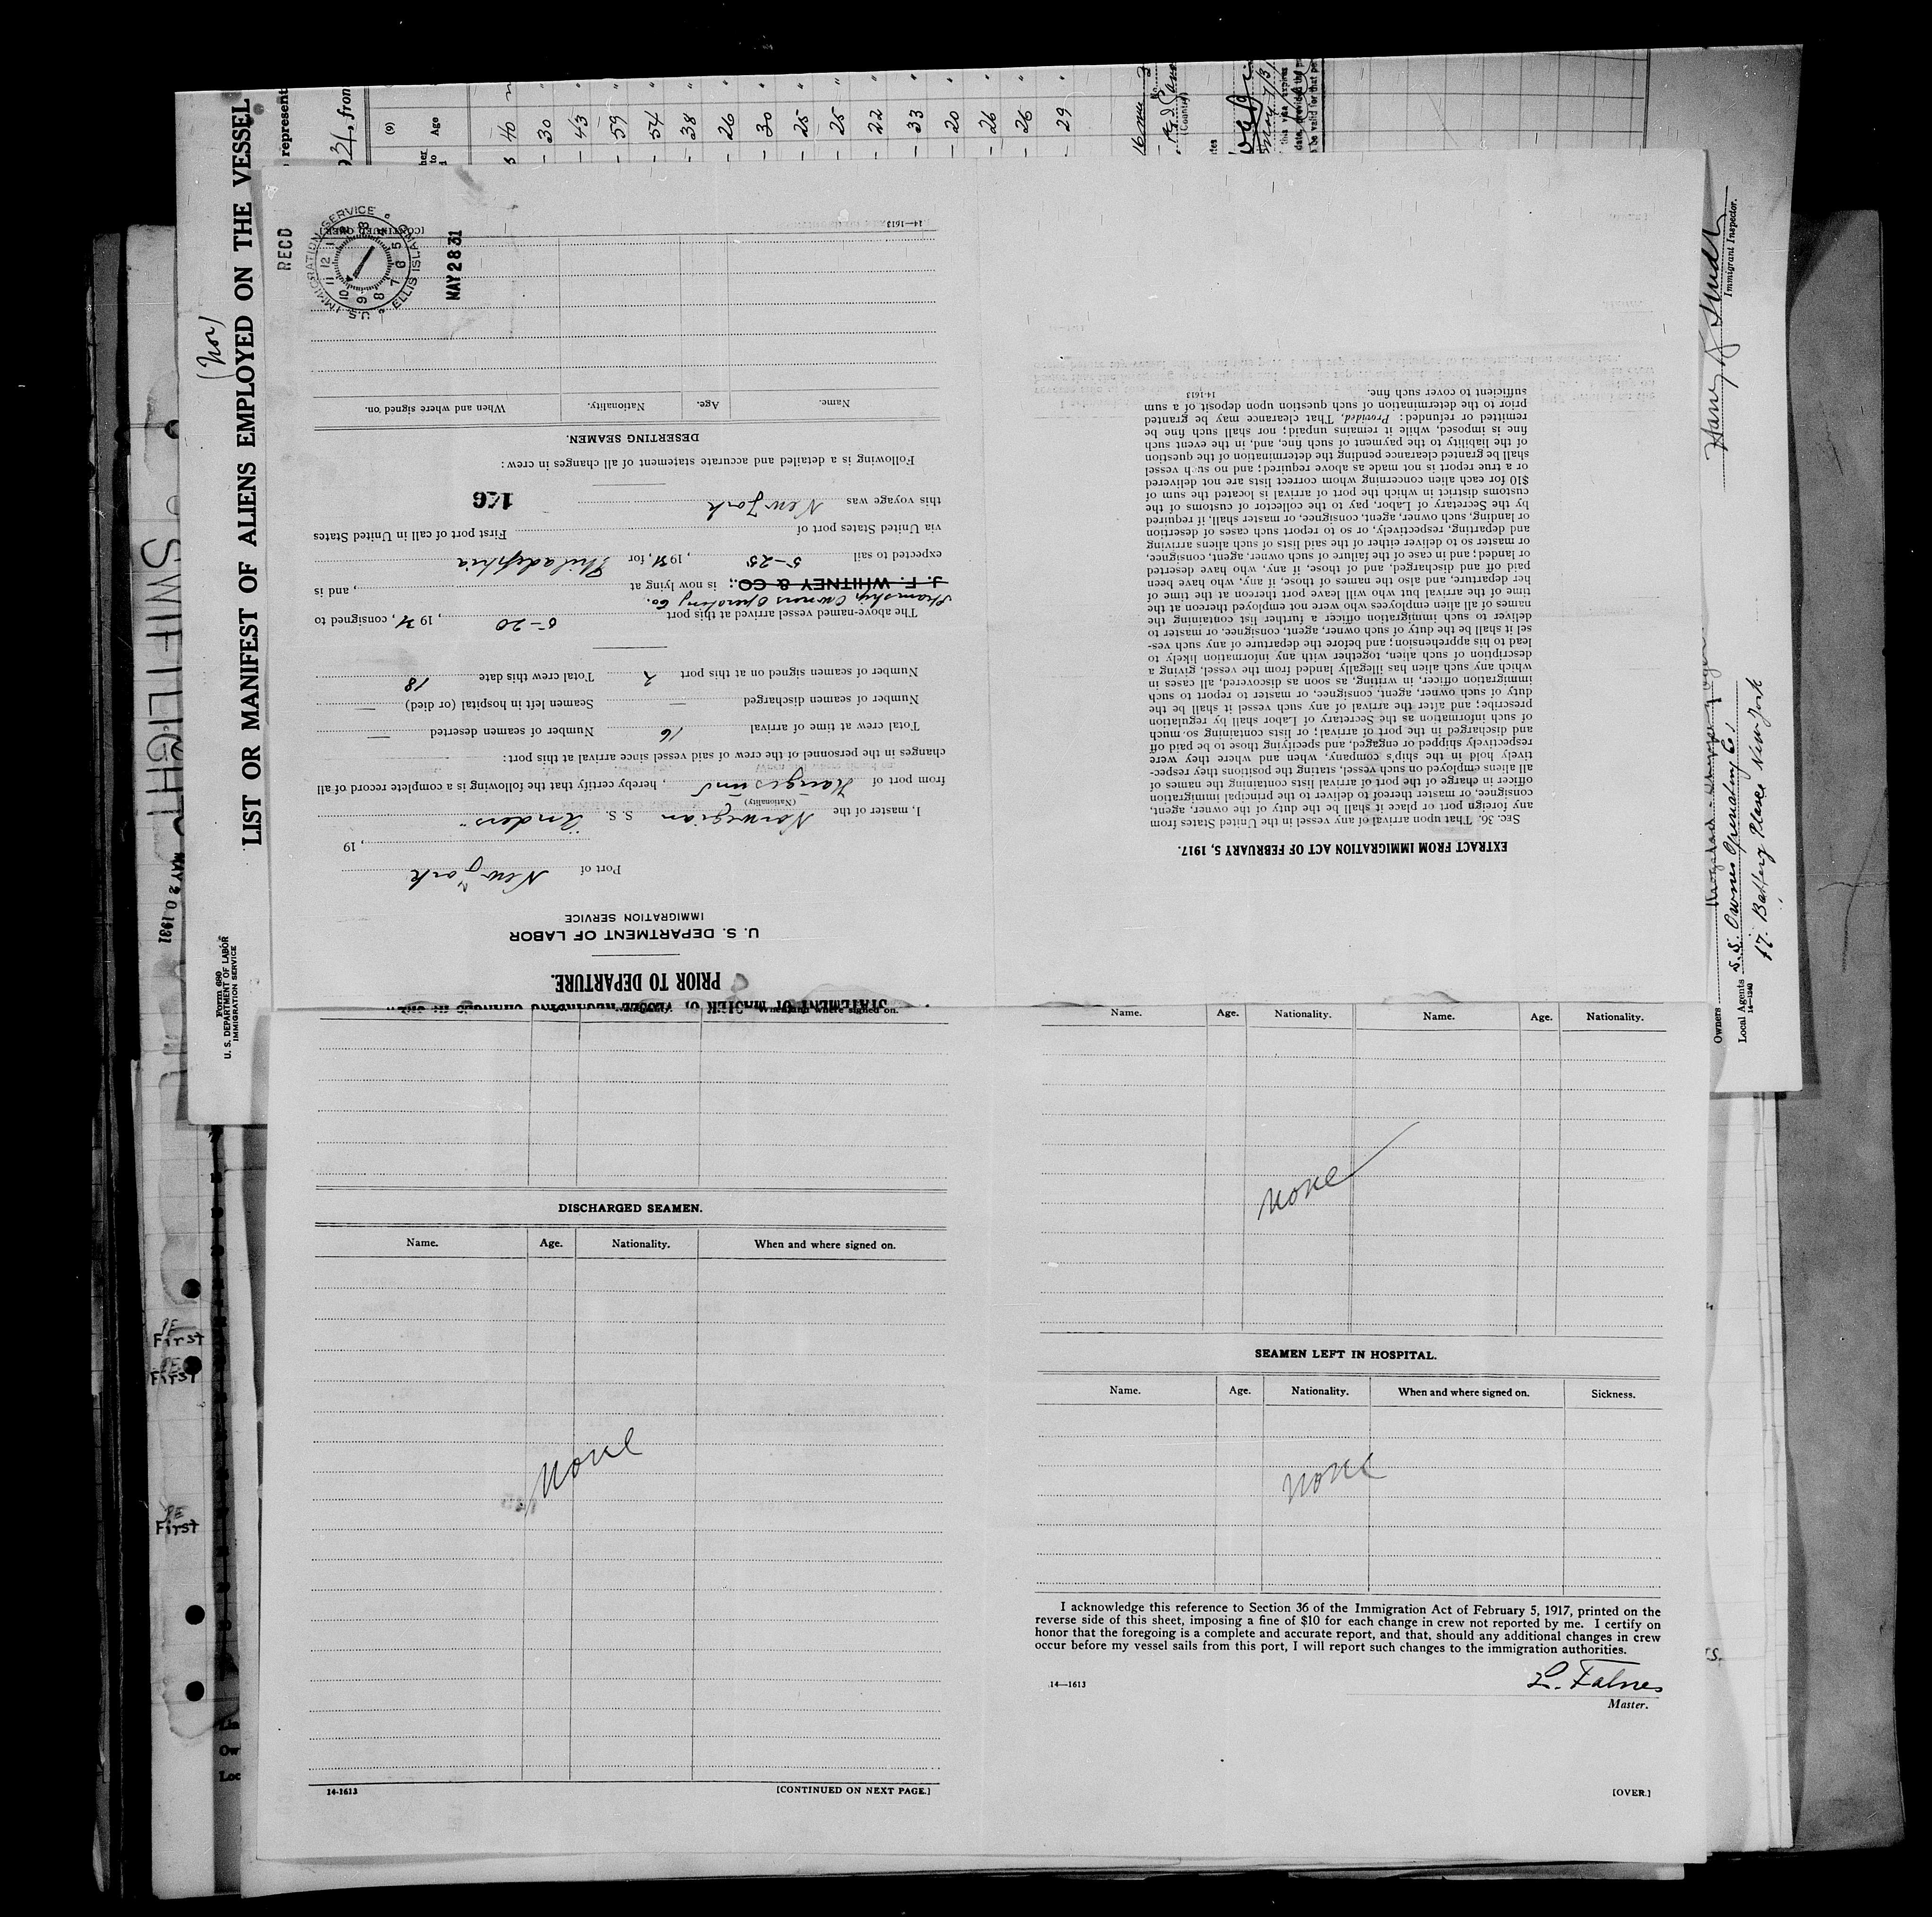 LIST OR MANIFEST OF ALIENS EMPLOYED ON THE VESSEL
(Nor)
Form 680
U. S. DEPARTMENT OF LABOR
IMMIGRATION SERVICE
represent
31, from
(9)
Age
40
30
43
59
54
38
26
30
25
25
22
33
20
26
26
29
(Country)
Immigrant Inspector.
Owners
Local Agents S.S. Owners Operating Co.
17. Battery Place New York
14—1240
SWIFTLIGHT
MAY 20 1931
PE
First
PE
First
PE
First
Ow
Loc
RECD
IMMIGRATION SERVICE
U.S. ELLIS ISLAND
MAY 28 31
STATEMENT OF MASTER OF VESSEL REGARDING CHANGES IN CREW
PRIOR TO DEPARTURE.
U. S. DEPARTMENT OF LABOR
IMMIGRATION SERVICE
Port of New York
, 19
I, master of the Norwegian S. S. "Anders"
(Nationality)
from port of Haugesund, hereby certify that the following is a complete record of all
changes in the personnel of the crew of said vessel since arrival at this port:
Total crew at time of arrival 16 Number of seamen deserted —
Number of seamen discharged — Seamen left in hospital (or died) —
Number of seamen signed on at this port 2 Total crew this date 18
The above-named vessel arrived at this port 5-20, 1931, consigned to
Steamship Owners Operating Co.
J. F. WHITNEY & CO.; is now lying at , and is
expected to sail 5-25, 1931, for Philadelphia
via United States port of First port of call in United States
this voyage was New York
Following is a detailed and accurate statement of all changes in crew:
DESERTING SEAMEN.
Name. Age. Nationality. When and where signed on.
14—1613 [CONTINUED OVER.]
EXTRACT FROM IMMIGRATION ACT OF FEBRUARY 5, 1917.
SEC. 36. That upon arrival of any vessel in the United States from
any foreign port or place it shall be the duty of the owner, agent,
consignee, or master thereof to deliver to the principal immigration
officer in charge of the port of arrival lists containing the names of
all aliens employed on such vessel, stating the positions they respec-
tively hold in the ship's company, when and where they were
respectively shipped or engaged, and specifying those to be paid off
and discharged in the port of arrival; or lists containing so much
of such information as the Secretary of Labor shall by regulation
prescribe; and after the arrival of any such vessel it shall be the
duty of such owner, agent, consignee, or master to report to such
immigration officer, in writing, as soon as discovered, all cases in
which any such alien has illegally landed from the vessel, giving a
description of such alien, together with any information likely to
lead to his apprehension; and before the departure of any such ves-
sel it shall be the duty of such owner, agent, consignee, or master to
deliver to such immigration officer a further list containing the
names of all alien employees who were not employed thereon at the
time of the arrival but who will leave port thereon at the time of
her departure, and also the names of those, if any, who have been
paid off and discharged, and of those, if any, who have deserted
or landed; and in case of the failure of such owner, agent, consignee,
or master so to deliver either of the said lists of such aliens arriving
and departing, respectively, or so to report such cases of desertion
or landing, such owner, agent, consignee, or master shall, if required
by the Secretary of Labor, pay to the collector of customs of the
customs district in which the port of arrival is located the sum of
$10 for each alien concerning whom correct lists are not delivered
or a true report is not made as above required; and no such vessel
shall be granted clearance pending the determination of the question
of the liability to the payment of such fine, and, in the event such
fine is imposed, while it remains unpaid; nor shall such fine be
remitted or refunded: Provided, That clearance may be granted
prior to the determination of such question upon deposit of a sum
sufficient to cover such fine.
14-1613
When and where signed on.
DISCHARGED SEAMEN.
Name. Age. Nationality. When and where signed on.
none
14-1613 [CONTINUED ON NEXT PAGE.]
Name. Age. Nationality. Name. Age. Nationality.
none
SEAMEN LEFT IN HOSPITAL.
Name. Age. Nationality. When and where signed on. Sickness.
none
I acknowledge this reference to Section 36 of the Immigration Act of February 5, 1917, printed on the
reverse side of this sheet, imposing a fine of $10 for each change in crew not reported by me. I certify on
honor that the foregoing is a complete and accurate report, and that, should any additional changes in crew
occur before my vessel sails from this port, I will report such changes to the immigration authorities.
L. Falnes
14—1613
Master.
[OVER.]